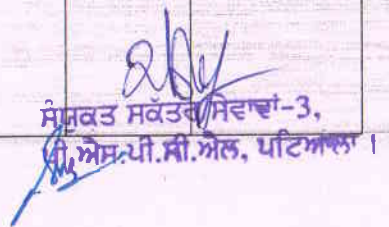 ਸੰਯੁਕਤ ਸਕੱਤਰ ਸੇਵਾਵਾਂ-3,
ਪੀ.ਐਸ.ਪੀ.ਸੀ.ਐਲ, ਪਟਿਆਲਾ।